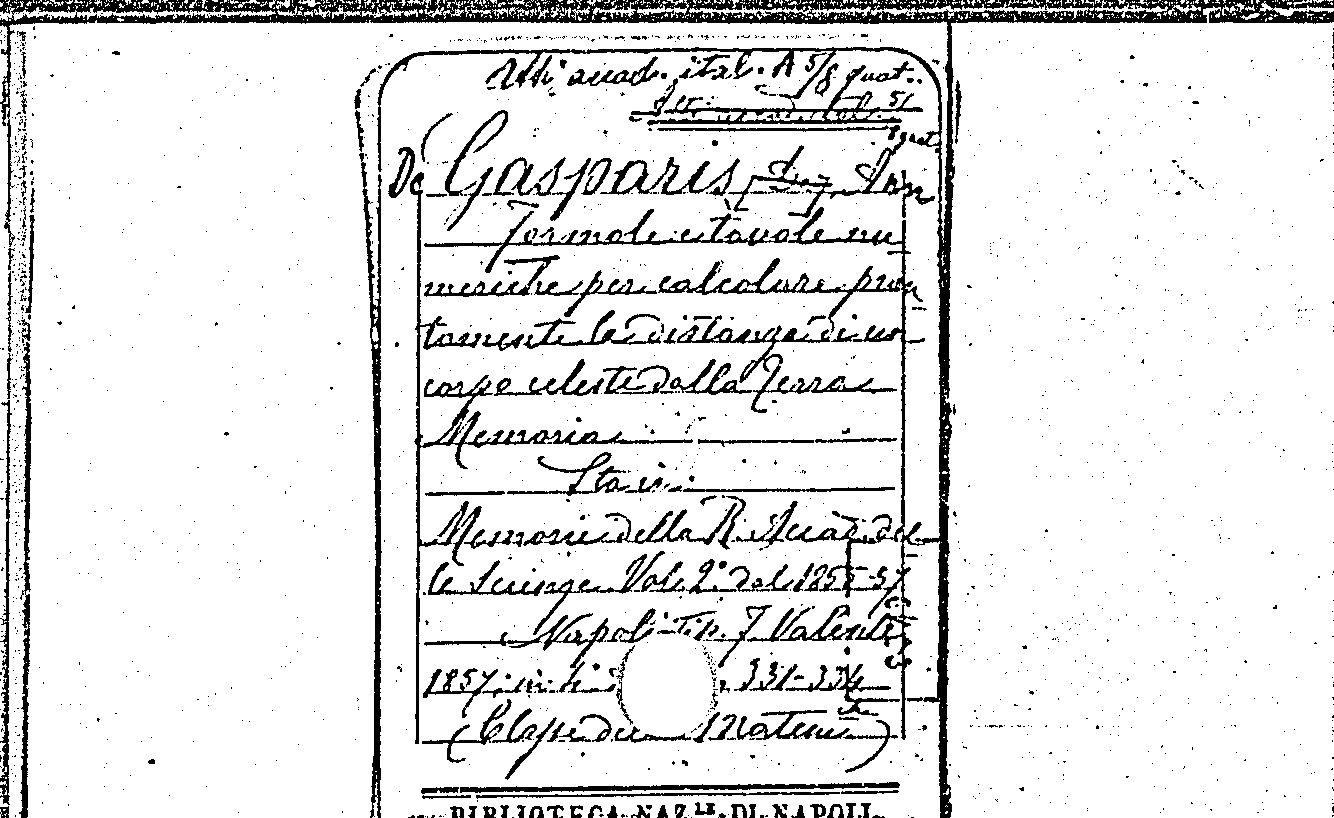 Atti accad. ital. A 5/8 quat.
5/
8 quat.
De Gasparis, Ann
Formole e tavole nu
meriche per calcolare pron
tamente le distanze di un
corpo celeste dalla Terra
Memoria
Sta in:
Memorie della R. Accad. del
le Scienze Vol. 2.° dal 1855-57
Napoli Tip. F. Valenti
1857. in 4.° 331-334
(Classe di Matem.che)
BIBLIOTECA NAZ.LE DI NAPOLI